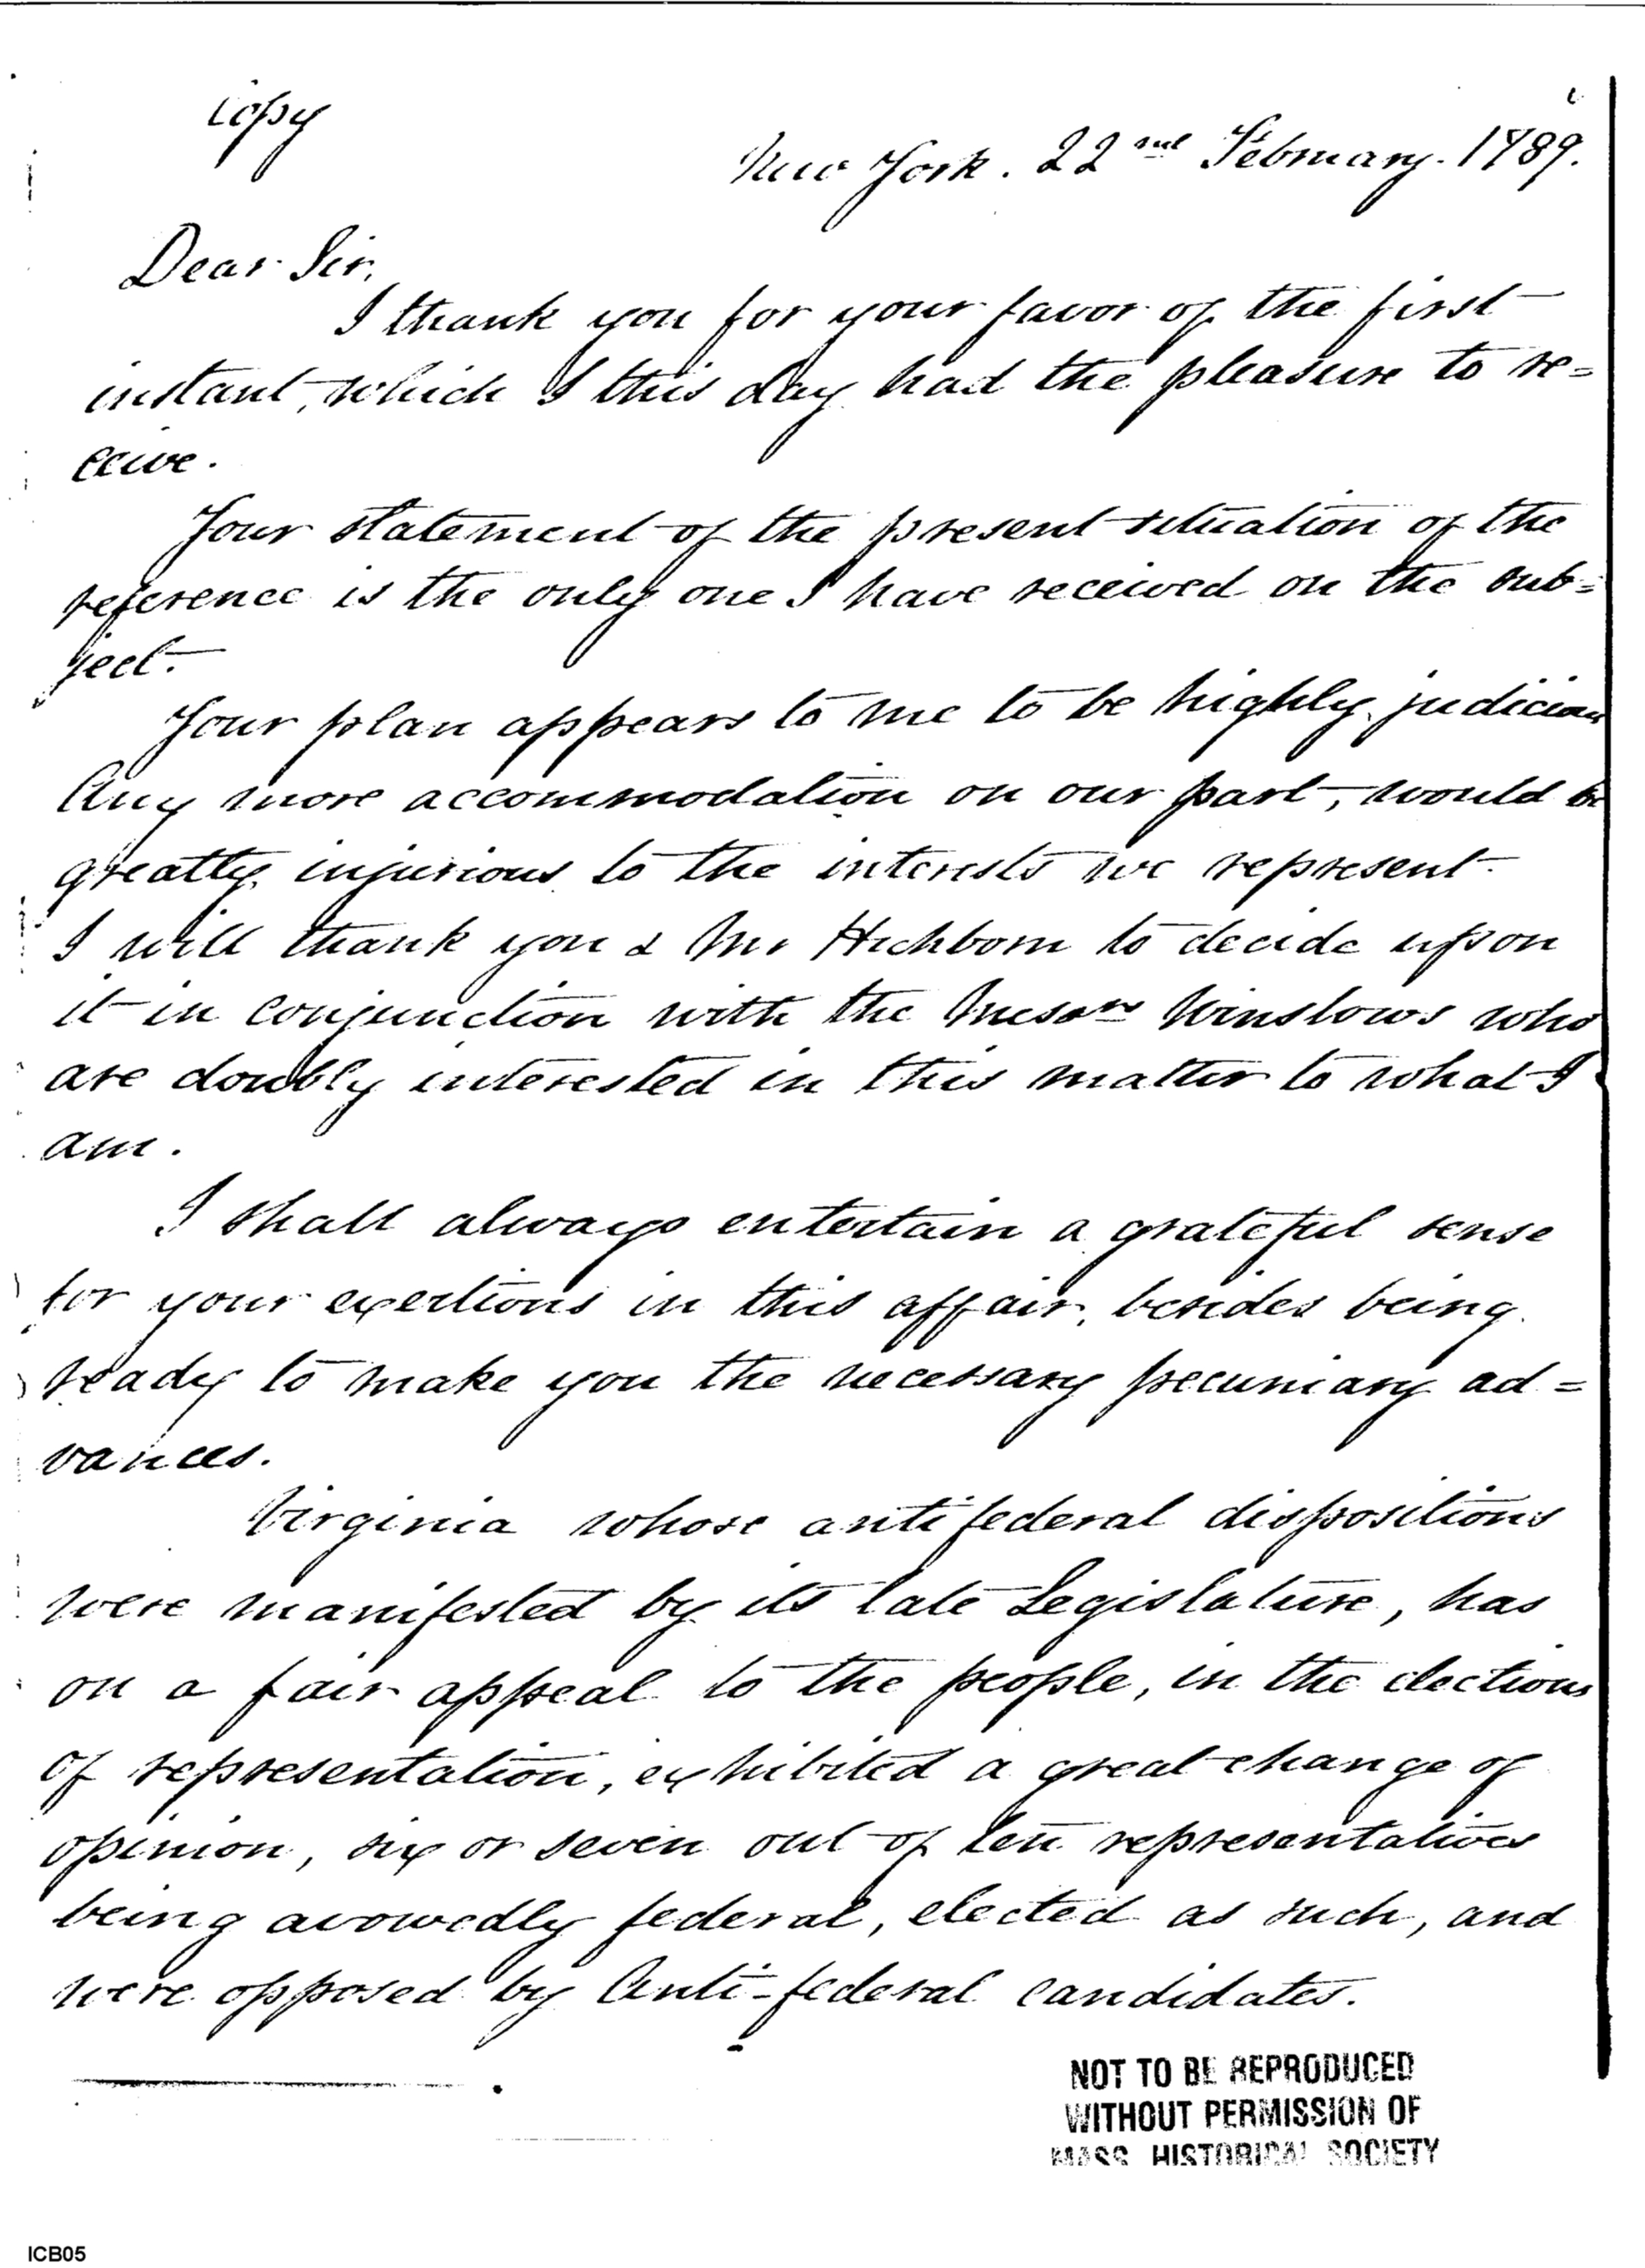 copy
New York. 22nd February. 1789.
Dear Sir.
I thank you for your favor of the first
instant, which I this day had the pleasure to re=
ceive.
Your statement of the present situation of the
reference is the only one I have received on the sub=
ject.
Your plan appears to me to be highly judicious
Any more accommodation on our part, would be
greatly injurious to the interests we represent.
I will thank you & Mr Hichborn to decide upon
it in conjunction with the Messrs Winslows who
are doubly interested in this matter to what I
am.
I shall always entertain a grateful sense
for your exertions in this affair, besides being
ready to make you the necessary pecuniary ad=
vances.
Virginia whose antifederal dispositions
were manifested by its late Legislature, has
on a fair appeal to the people, in the elections
of representation, exhibited a great change of
opinion, six or seven out of ten representatives
being avowedly federal, elected as such, and
were opposed by Anti-federal candidates.
NOT TO BE REPRODUCED
WITHOUT PERMISSION OF
MASS HISTORICAL SOCIETY
ICB05